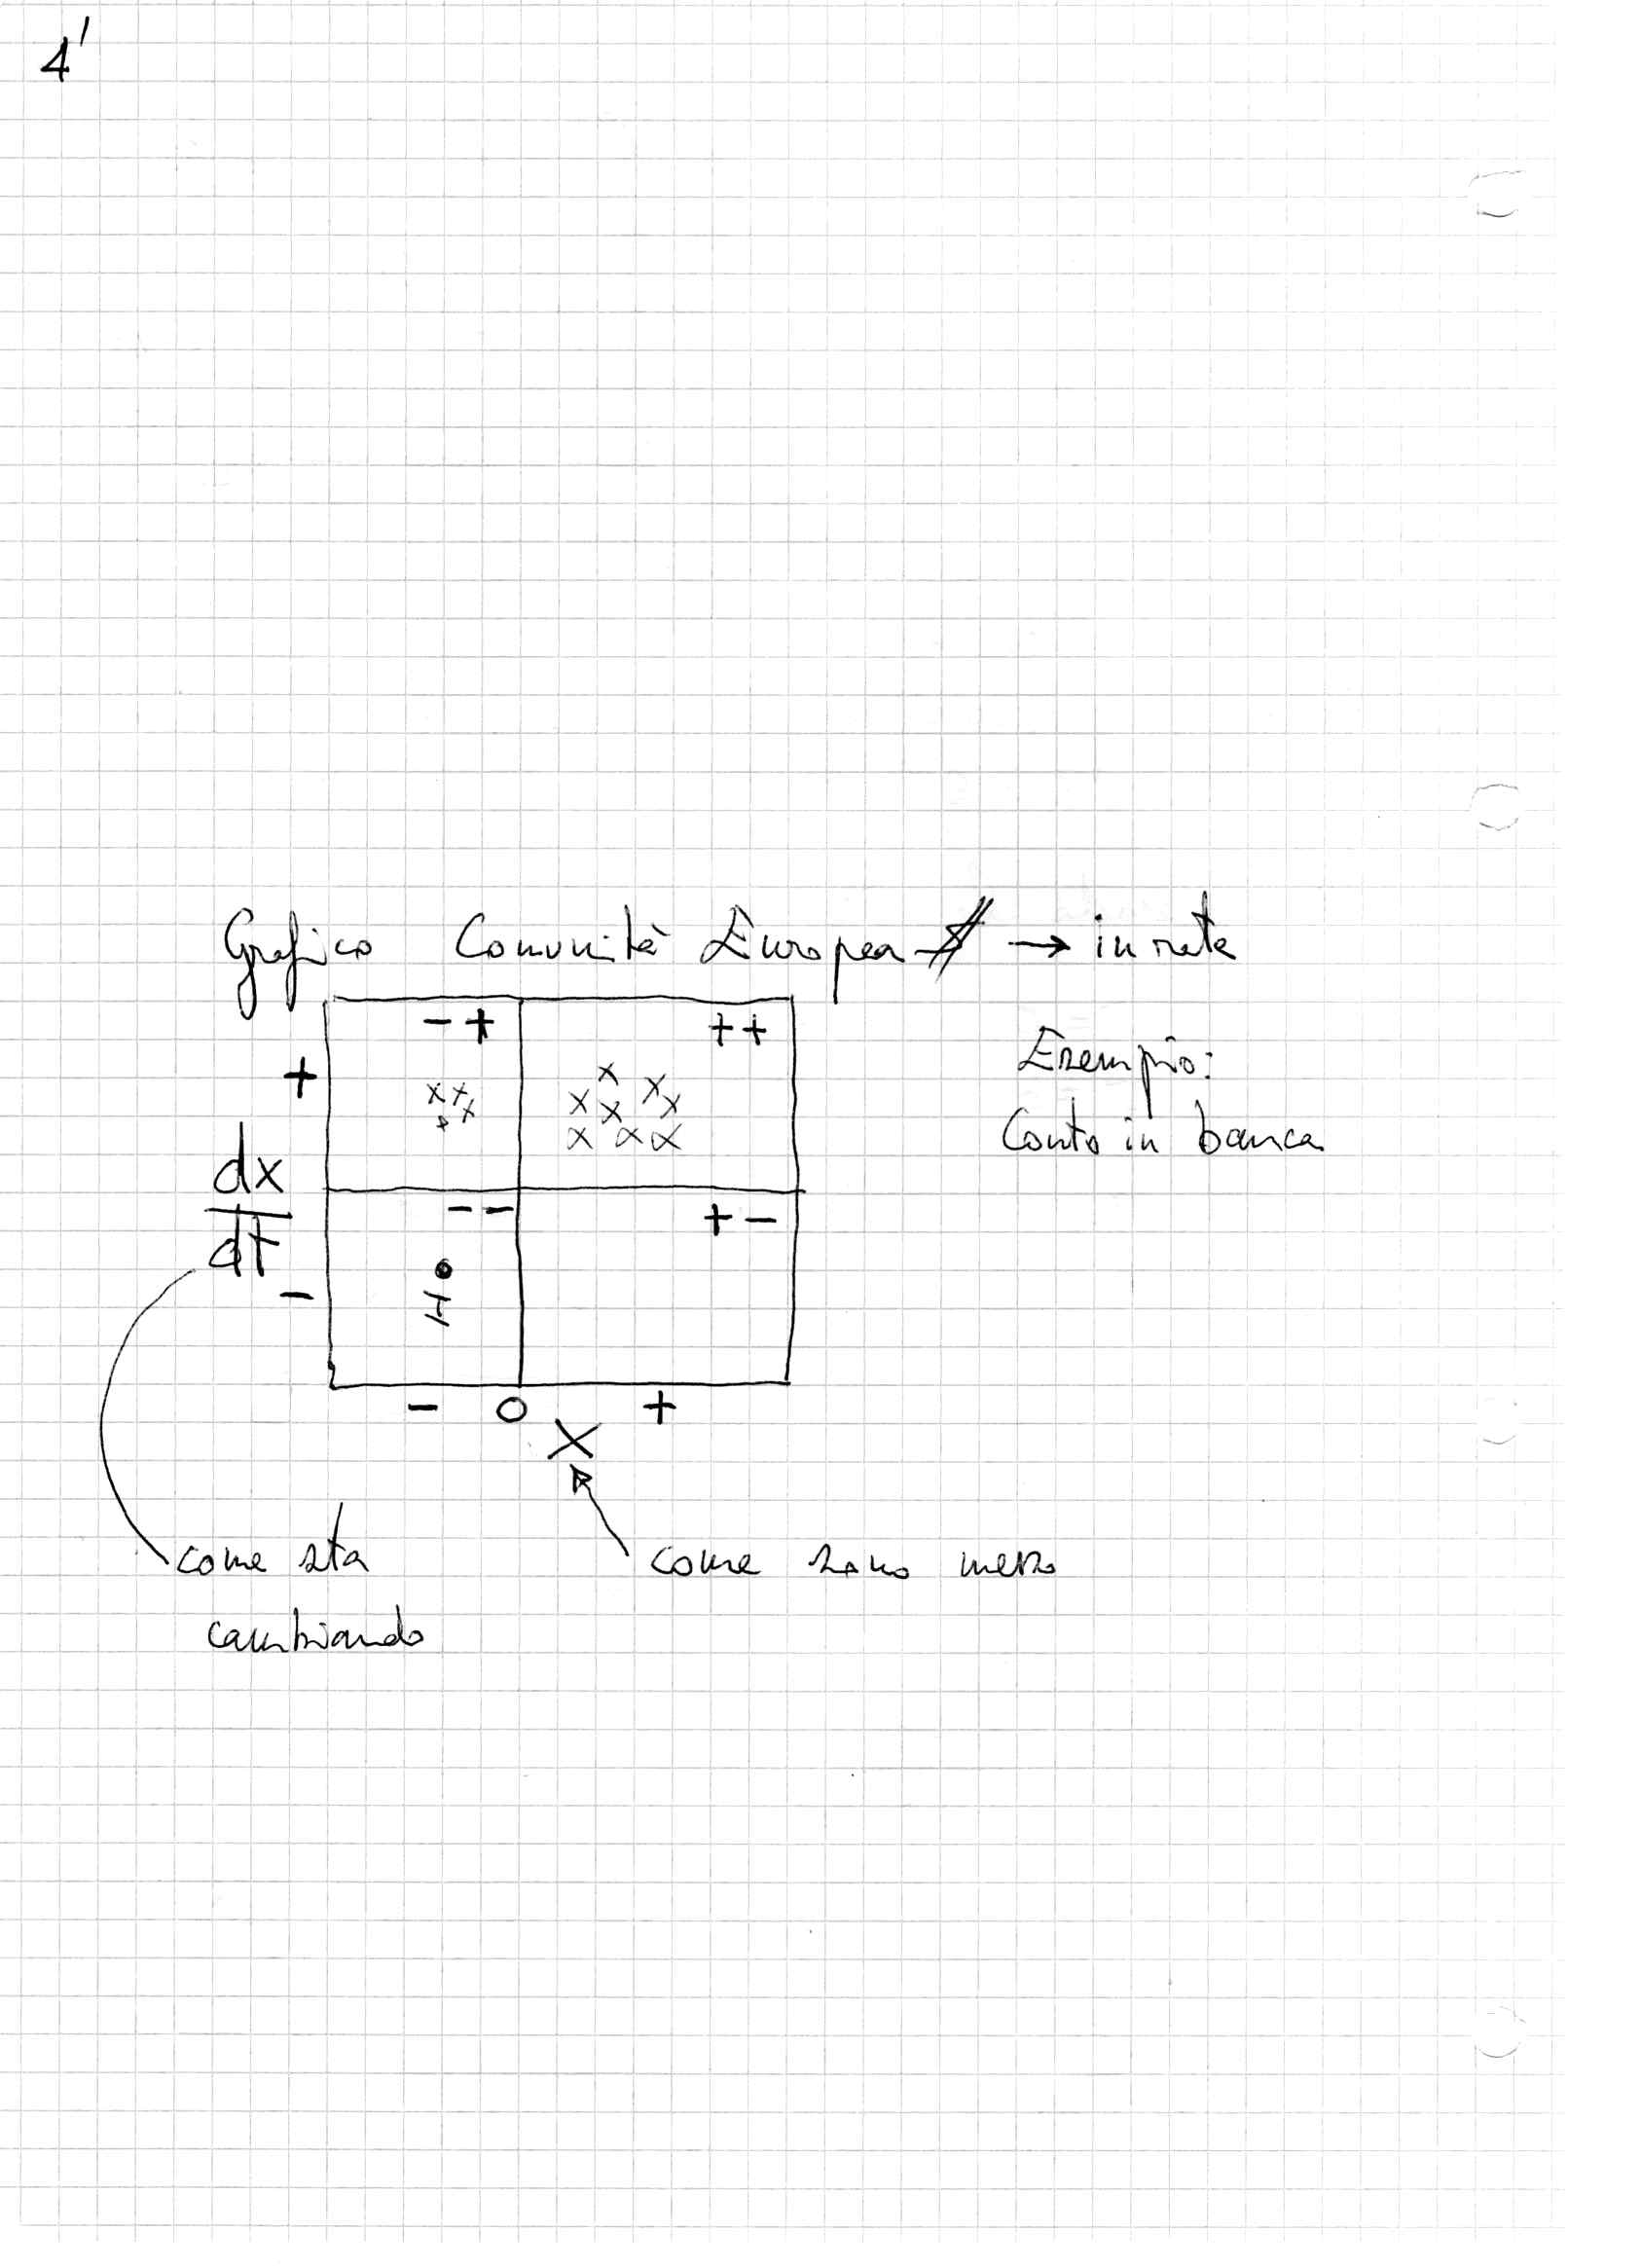 4'
Grafico Comunità Europea $ → in rete
- + + +
+
x x x x x x x x x x x x
Esempio:
Conto in banca
dx
dt
- - + -
-
- 0 +
X
come sta come sono messo
cambiando